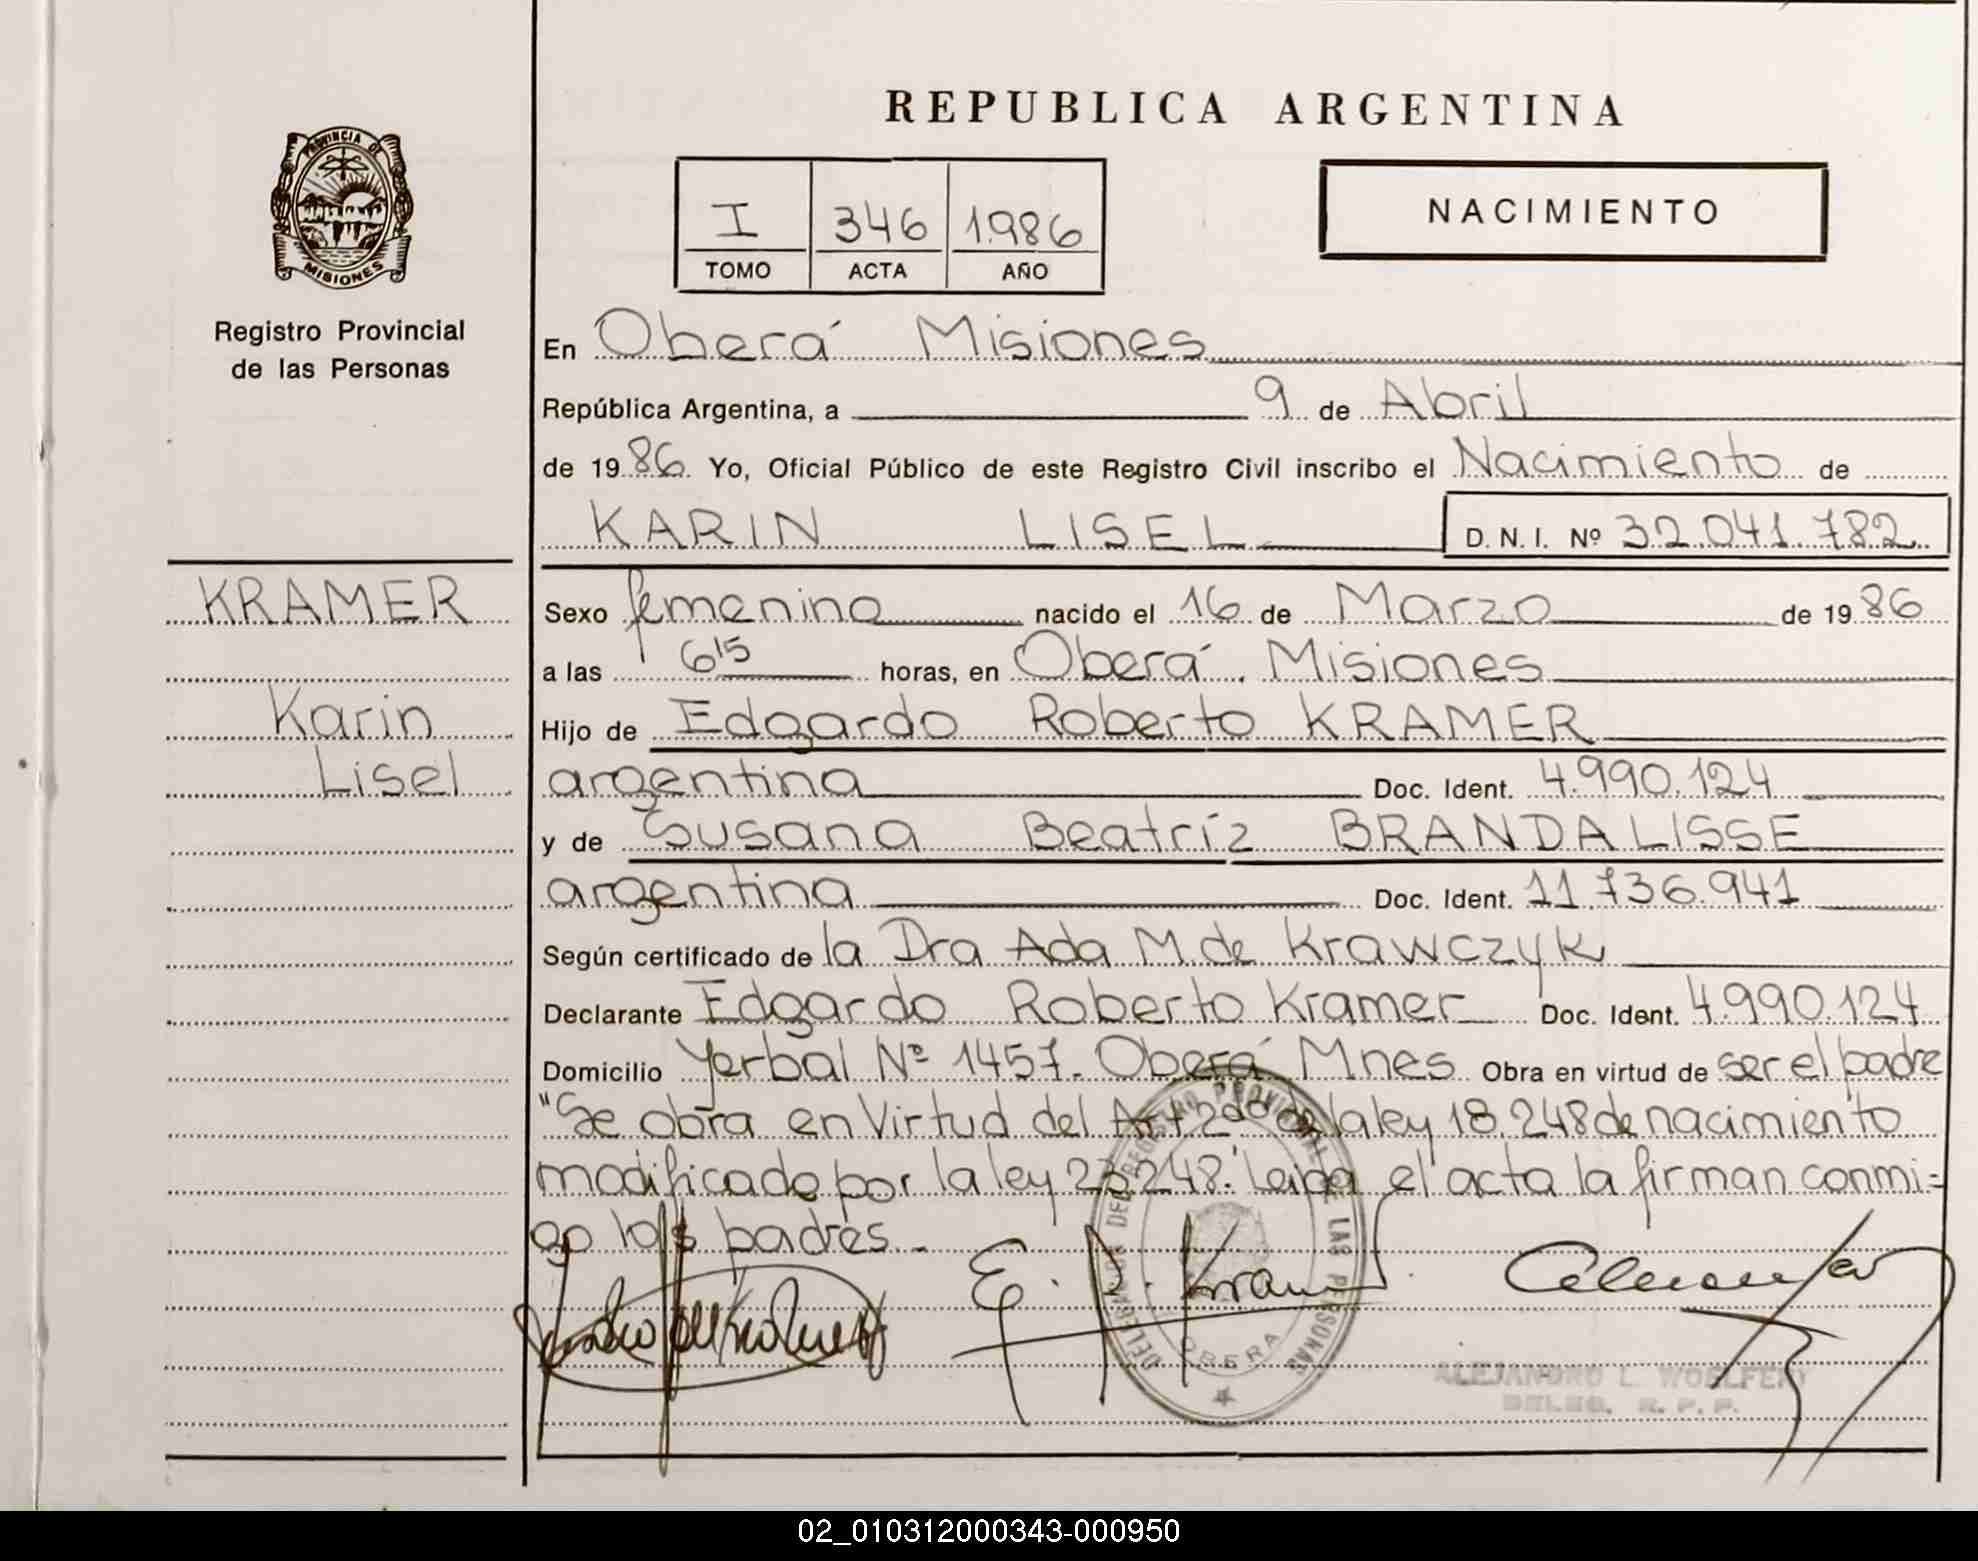 REPUBLICA ARGENTINA
PROVINCIA DE
MISIONES
Registro Provincial
de las Personas
I 346 1986
TOMO ACTA AÑO
NACIMIENTO
En Oberá Misiones
República Argentina, a 9 de Abril
de 1986. Yo, Oficial Público de este Registro Civil inscribo el Nacimiento de
KARIN LISEL D. N. I. Nº 32.041.782
KRAMER
Karin
Lisel
Sexo femenino nacido el 16 de Marzo de 1986
a las 6 15 horas, en Oberá. Misiones
Hijo de Edgardo Roberto KRAMER
argentina Doc. Ident. 4.990.124
y de Susana Beatríz BRANDALISSE
argentina Doc. Ident. 11.736.941
Según certificado de la Dra Ada M. de Krawczyk
Declarante Edgardo Roberto Kramer Doc. Ident. 4.990.124
Domicilio Yerbal Nº 1457. Oberá Mnes Obra en virtud de ser el padre
"Se obra en Virtud del Art 2do de la ley 18.248 de nacimiento
modificado por la ley 23.248." Leida el acta la firman conmi-
go los padres.-
E. R. Kramer
DELEGACION DEL REGISTRO PROVINCIAL DE LAS PERSONAS
OBERA
ALEJANDRO L.
DELEG. R. P. P.
02_010312000343-000950